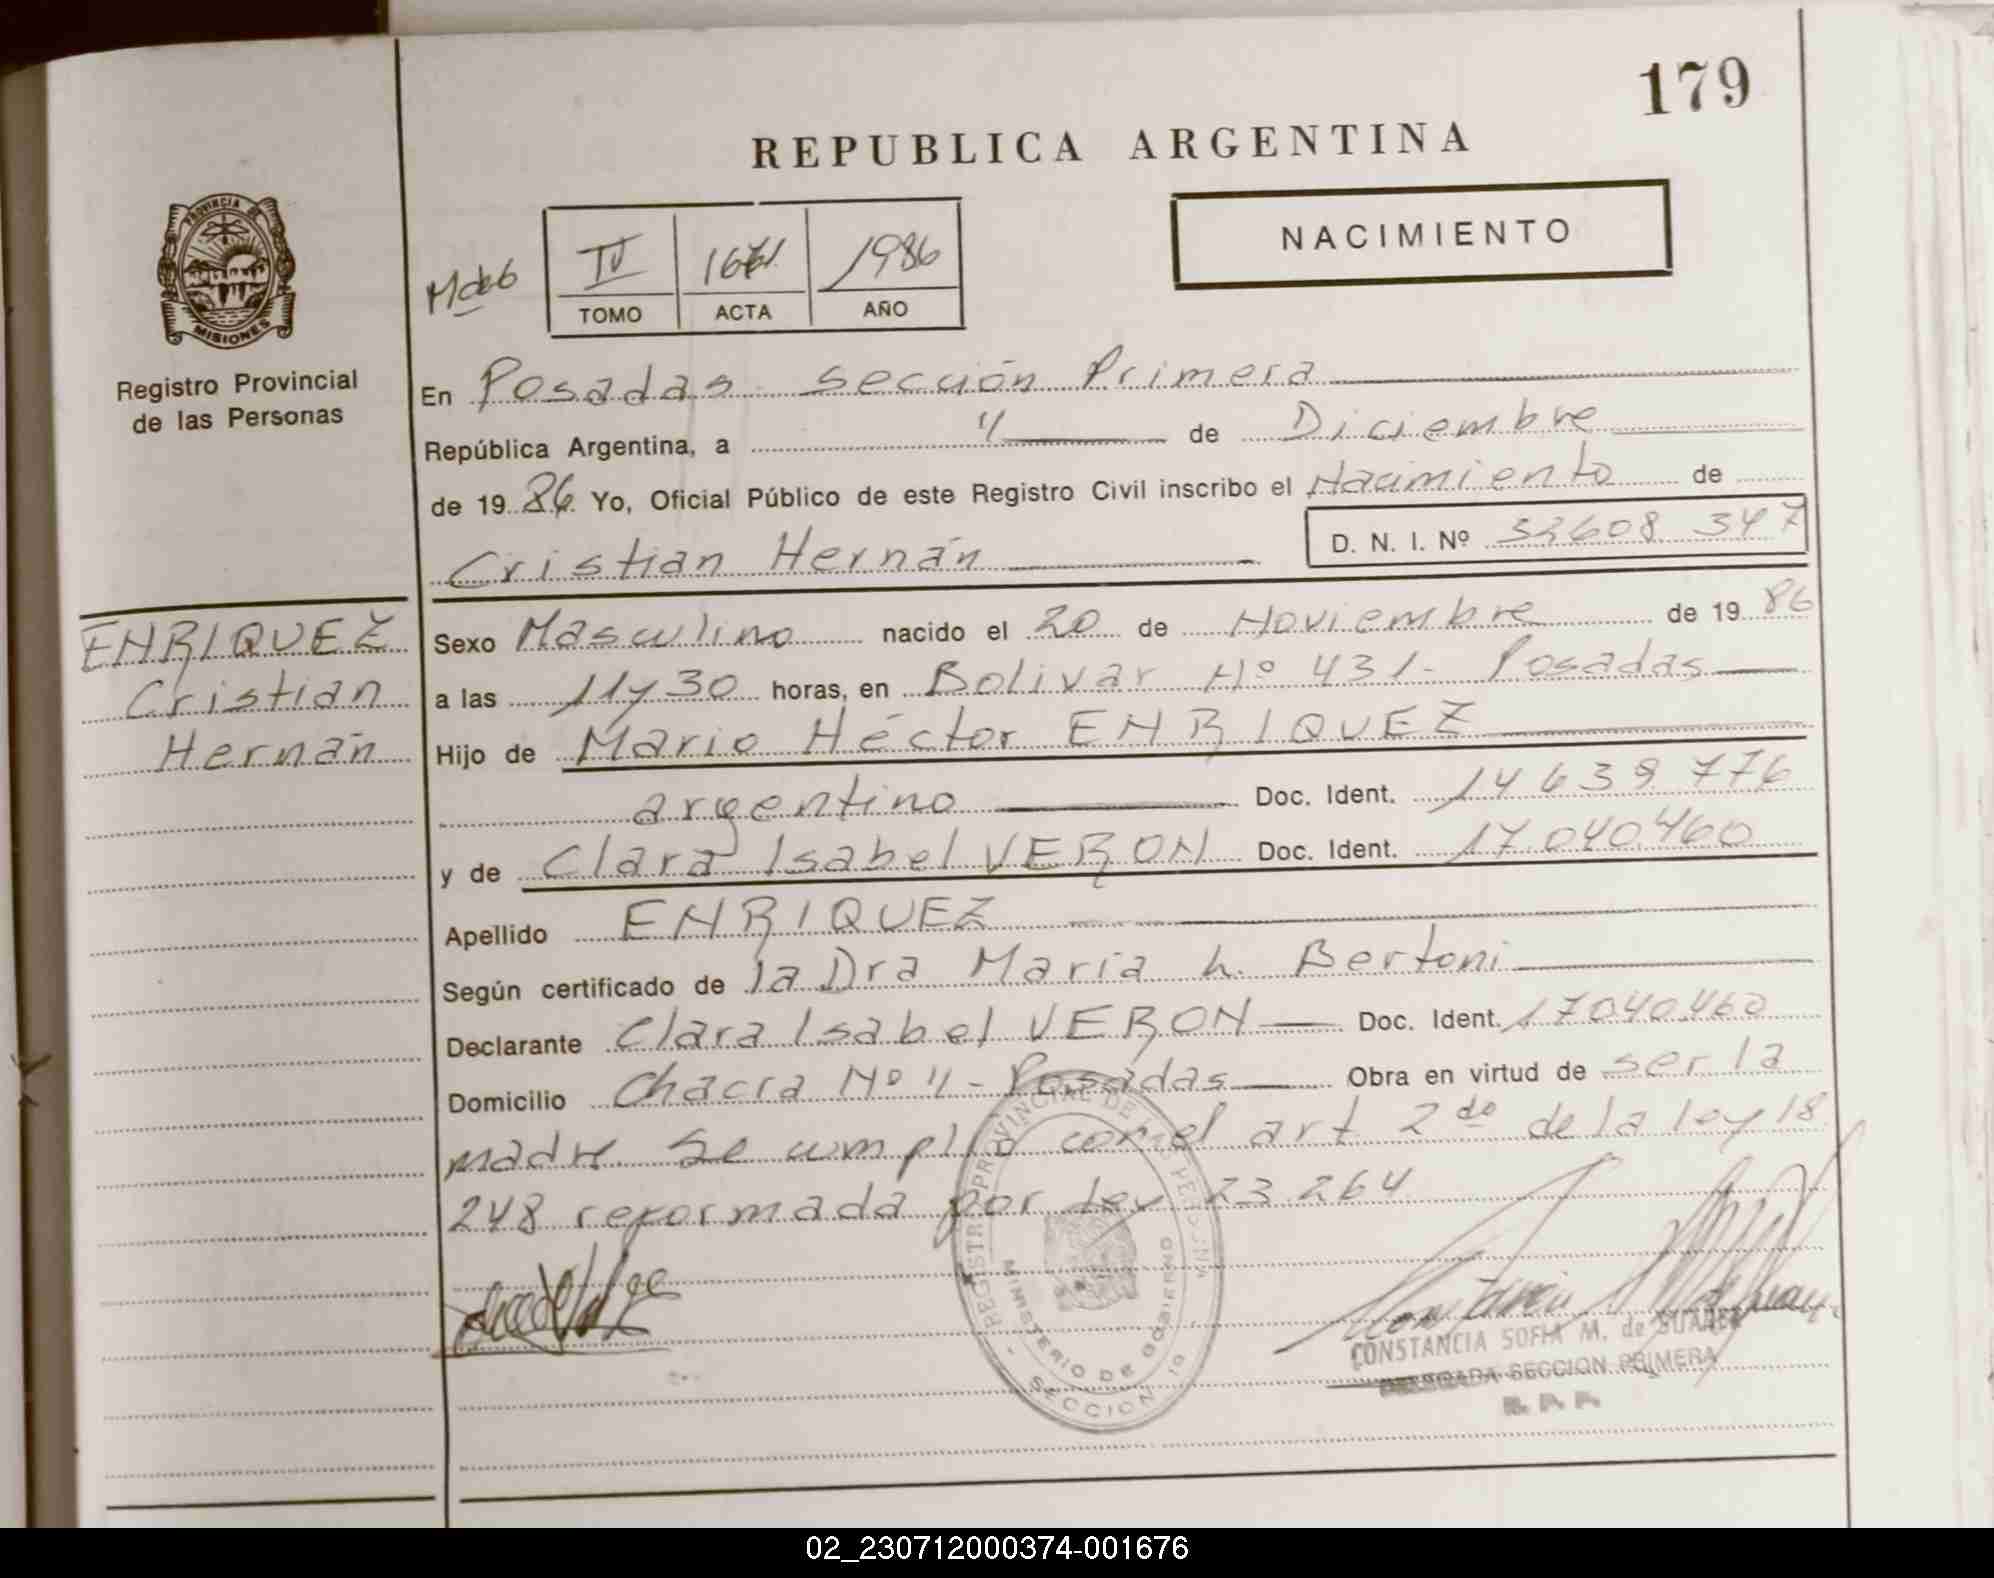 179
REPUBLICA ARGENTINA
PROVINCIA DE
MISIONES
Registro Provincial
de las Personas
NACIMIENTO
IV 1986
TOMO ACTA AÑO
En Posadas sección Primera
República Argentina, a 4 de Diciembre
de 1986 Yo, Oficial Público de este Registro Civil inscribo el Nacimiento de
Cristian Hernán D. N. I. Nº 32608 347
ENRIQUEZ
Cristian
Hernán
Sexo Masculino nacido el 20 de Noviembre de 1986
a las 11y30 horas, en Bolivar Nº 431- Posadas
Hijo de Mario Héctor ENRIQUEZ
argentino Doc. Ident. 14 639 776
y de Clara Isabel VERON Doc. Ident. 17.040.460
Apellido ENRIQUEZ
Según certificado de la Dra María L. Bertoni
Declarante Clara Isabel VERON Doc. Ident. 17040460
Domicilio Chacra Nº 4 - Posadas Obra en virtud de ser la
madre. Se cumplió con el art 2do de la ley 18
248 reformada por Ley 23.264
REGISTRO PROVINCIAL DE LAS PERSONAS
MINISTERIO DE GOBIERNO
SECCION 1a
CONSTANCIA SOFIA M. de SUAREZ
DELEGADA SECCION PRIMERA
R. P. P.
02_230712000374-001676